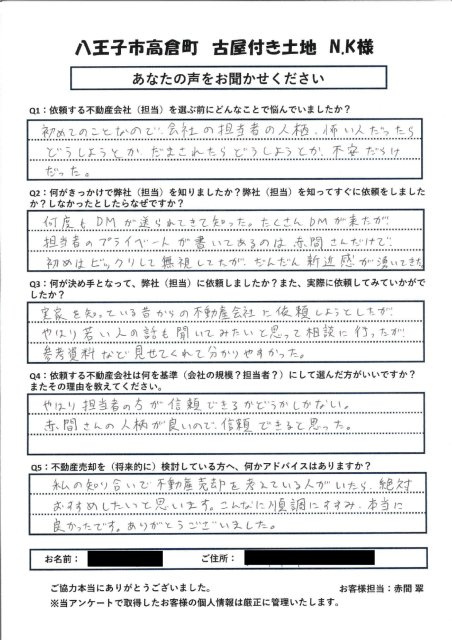 八王子市高倉町 古屋付き土地 N.K様
あなたの声をお聞かせください
Q1：依頼する不動産会社（担当）を選ぶ前にどんなことで悩んでいましたか？
初めてのことなので、会社の担当者の人柄、怖い人だったら
どうしようとか、だまされたらどうしようとか、不安だらけ
だった。
Q2：何がきっかけで弊社（担当）を知りましたか？弊社（担当）を知ってすぐに依頼をしました
か？しなかったとしたらなぜですか？
何度もDMが送られてきて知った。たくさんDMが来たが、
担当者のプライベートが書いてあるのは赤間さんだけで、
初めはビックリして無視してたが、だんだん新近感が湧いてきた
Q3：何が決め手となって、弊社（担当）に依頼しましたか？また、実際に依頼してみていかがで
したか？
実家を知っている昔からの不動産会社に依頼しようとしたが、
やはり若い人の話も聞いてみたいと思って相談に行ったが
参考資料など見せてくれて分かりやすかった。
Q4：依頼する不動産会社は何を基準（会社の規模？担当者？）にして選んだ方がいいですか？
またその理由を教えてください。
やはり担当者の方が信頼できるかどうかしかない。
赤間さんの人柄が良いので、信頼できると思った。
Q5：不動産売却を（将来的に）検討している方へ、何かアドバイスはありますか？
私の知り合いで不動産売却を考えている人がいたら、絶対
おすすめしたいと思います。こんなに順調にすすみ、本当に
良かったです。ありがとうございました。
お名前： ご住所：
ご協力本当にありがとうございました。 お客様担当：赤間 翠
※当アンケートで取得したお客様の個人情報は厳正に管理いたします。